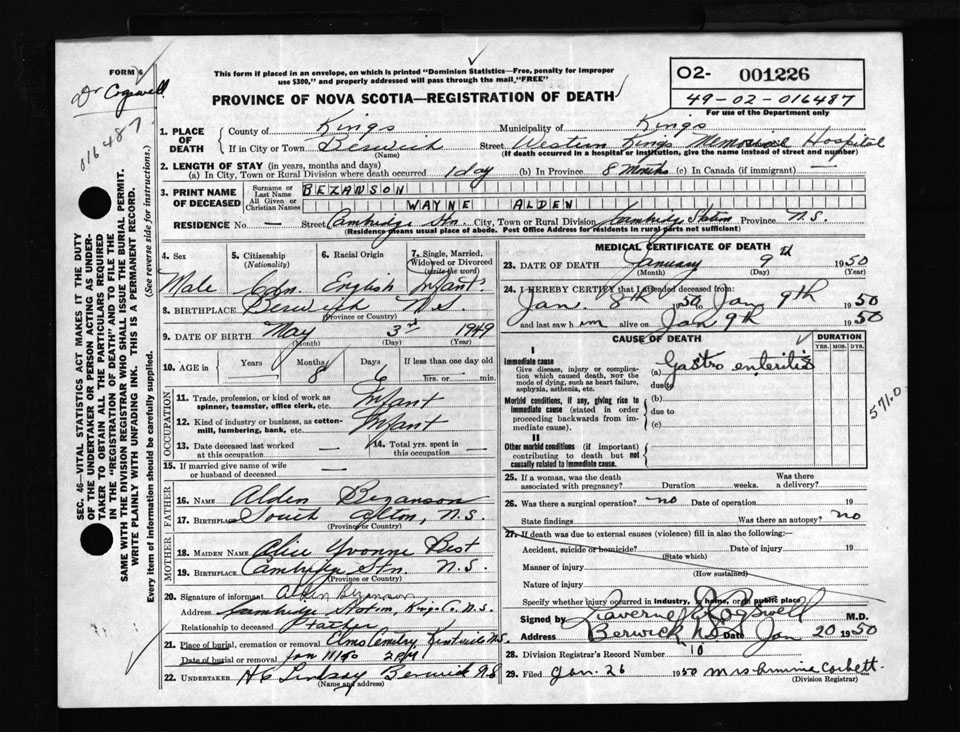 FORM 6
This form if placed in an envelope, on which is printed "Dominion Statistics—Free, penalty for improper
use $300," and properly addressed will pass through the mail "FREE"
Dr Cogswell
O2- 001226
49-02-016487
For use of the Department only
016487
PROVINCE OF NOVA SCOTIA—REGISTRATION OF DEATH
1. PLACE OF DEATH
County of Kings Municipality of Kings
If in City or Town Berwick Street Western Kings Memorial Hospital
(Name) (If death occurred in a hospital or institution, give the name instead of street and number)
2. LENGTH OF STAY (in years, months and days)
(a) In City, Town or Rural Division where death occurred 1 day (b) In Province 8 Months (c) In Canada (if immigrant) —
3. PRINT NAME OF DECEASED
Surname or Last Name BEZANSON
All Given or Christian Names WAYNE ALDEN
RESIDENCE No. — Street Cambridge Stn. City, Town or Rural Division Cambridge Station Province N.S.
(Residence means usual place of abode. Post Office Address for residents in rural parts not sufficient)
4. Sex Male
5. Citizenship (Nationality) Cdn.
6. Racial Origin English
7. Single, Married, Widowed or Divorced (write the word) Infant
8. BIRTHPLACE Berwick N.S.
(Province or Country)
9. DATE OF BIRTH May 3rd 1949
(Month) (Day) (Year)
10. AGE in Years Months 8 Days 6 If less than one day old
hrs. or min.
OCCUPATION
11. Trade, profession, or kind of work as
spinner, teamster, office clerk, etc. Infant
12. Kind of industry or business, as cotten-
mill, lumbering, bank, etc. Infant
13. Date deceased last worked
at this occupation —
14. Total yrs. spent in
this occupation —
15. If married give name of wife
or husband of deceased —
FATHER
16. NAME Alden Bezanson
17. BIRTHPLACE South Alton, N.S.
(Province or Country)
MOTHER
18. MAIDEN NAME Alice Yvonne Best
19. BIRTHPLACE Cambridge Stn. N.S.
(Province or Country)
20. Signature of informant Alden Bezanson
Address Cambridge Station, Kings Co. N.S.
Relationship to deceased Father
21. Place of burial, cremation or removal Elms Cemetery Kentville N.S.
Date of burial or removal Jan 11/50 2 PM
22. UNDERTAKER H C Lindsay Berwick N.S
(Name and address)
MEDICAL CERTIFICATE OF DEATH
23. DATE OF DEATH January 9th 1950
(Month) (Day) (Year)
24. I HEREBY CERTIFY that I attended deceased from:
Jan. 8th 1950 to Jan 9th 1950
and last saw him alive on Jan 9th 1950
CAUSE OF DEATH DURATION
YRS. MOS. DYS.
I
Immediate cause
Give disease, injury or complication which caused death, not the mode of dying, such as heart failure, asphyxia, asthenia, etc.
(a) Gastro enteritis
due to
Morbid conditions, if any, giving rise to immediate cause (stated in order proceeding backwards from immediate cause).
(b)
due to
(c)
II
Other morbid conditions (if important) contributing to death but not causally related to immediate cause.
571.0
25. If a woman, was the death
associated with pregnancy? Duration weeks. Was there a delivery?
26. Was there a surgical operation? no Date of operation 19
State findings Was there an autopsy? no
27. If death was due to external causes (violence) fill in also the following:
Accident, suicide or homicide? Date of injury 19
(State which)
Manner of injury
(How sustained)
Nature of injury
Specify whether injury occurred in industry, in home, or in public place
Signed by Laverne B Cogswell M.D.
Address Berwick NS Date Jan 20 1950
28. Division Registrar's Record Number 10
29. Filed Jan. 26 1950 Mrs Ammina Corbett.
(Division Registrar)
SEC. 46—VITAL STATISTICS ACT MAKES IT THE DUTY
OF THE UNDERTAKER OR PERSON ACTING AS UNDER-
TAKER TO OBTAIN ALL THE PARTICULARS REQUIRED
IN THE "REGISTRATION OF DEATH" AND TO FILE THE
SAME WITH THE DIVISION REGISTRAR WHO SHALL ISSUE THE BURIAL PERMIT.
WRITE PLAINLY WITH UNFADING INK. THIS IS A PERMANENT RECORD.
Every item of information should be carefully supplied. (See reverse side for instructions.)